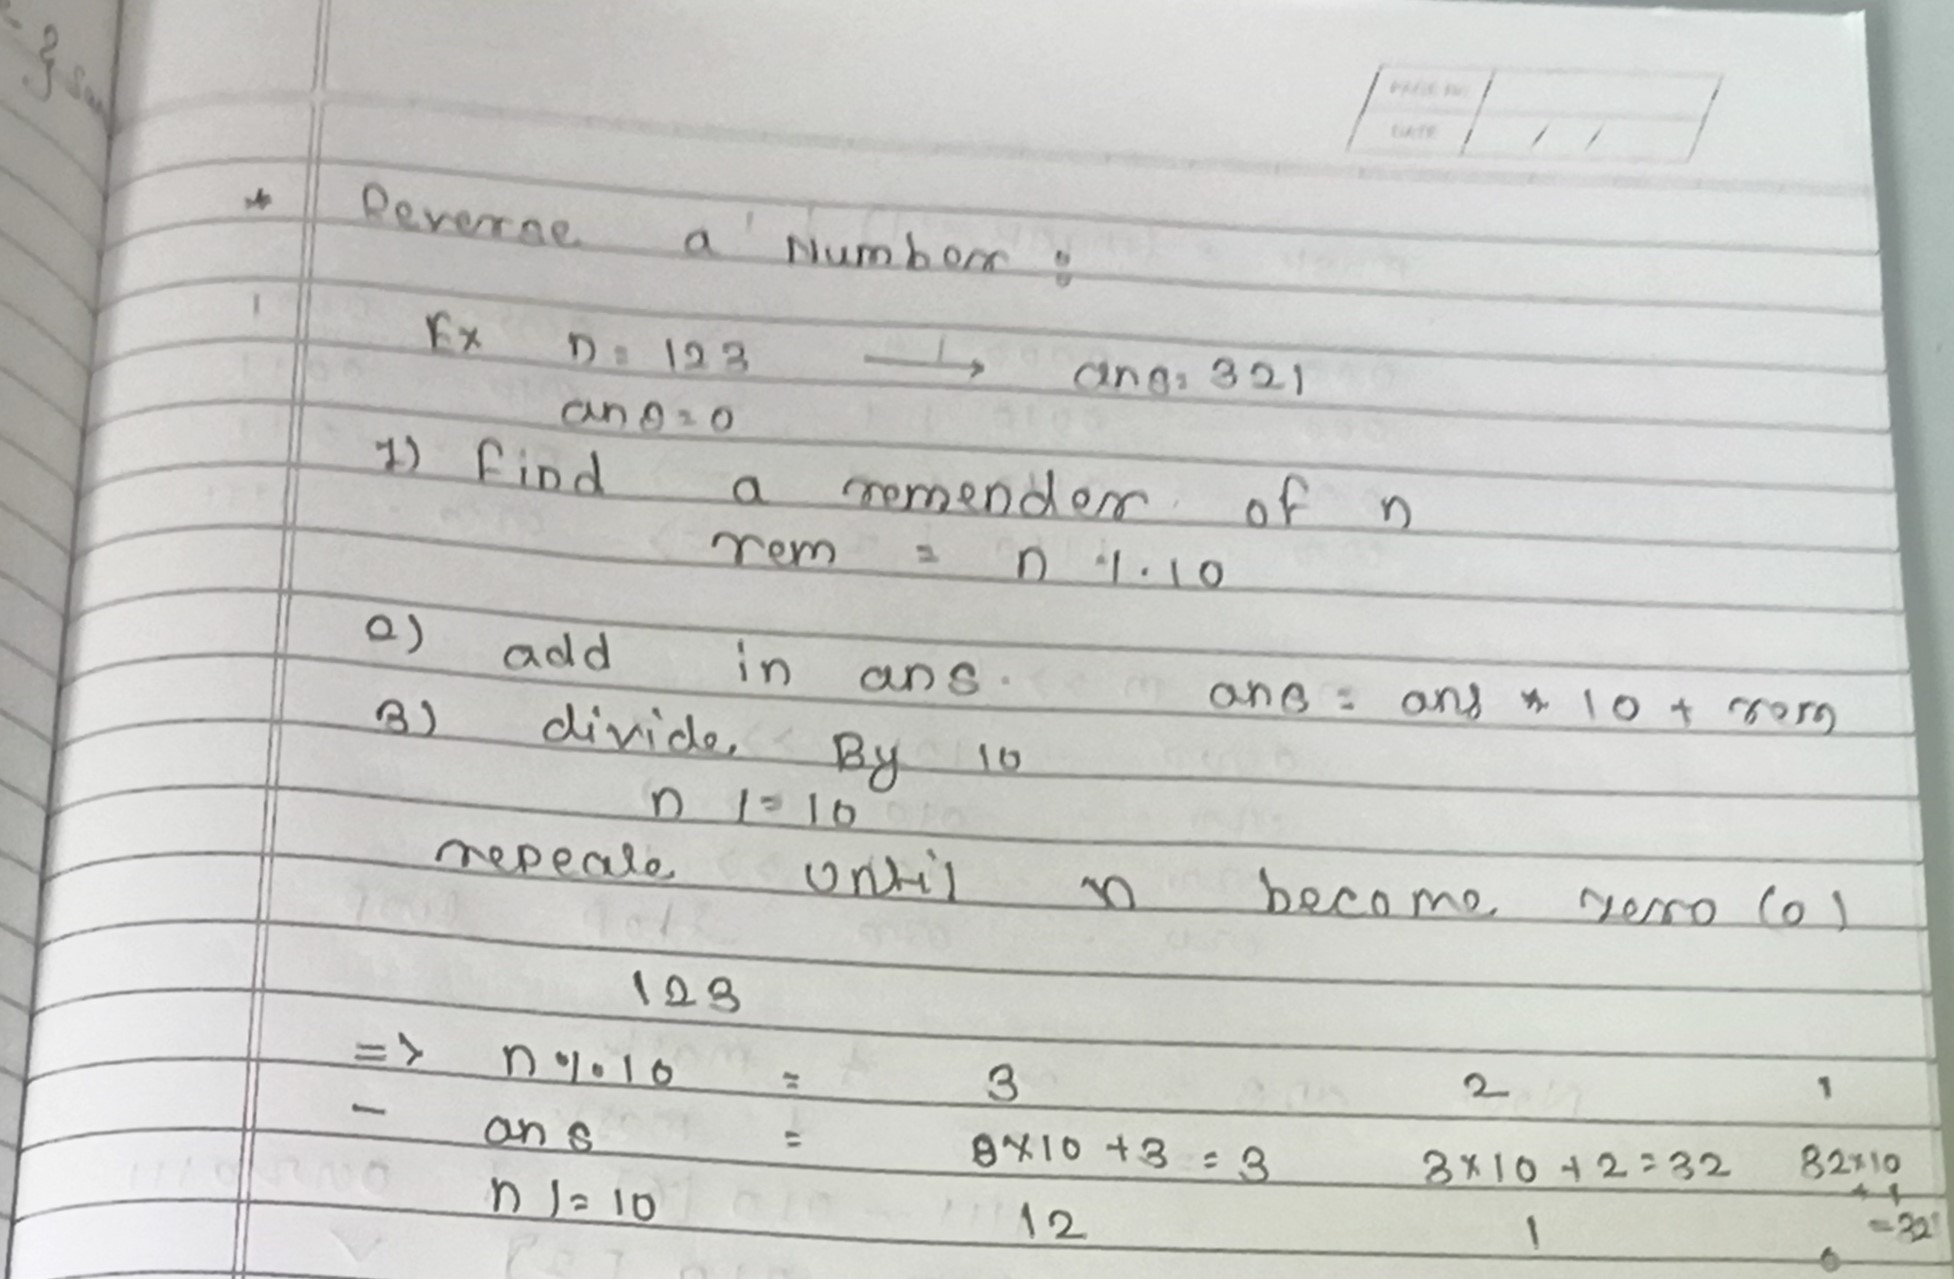 PAGE NO.
DATE / /
* Reverse a Number :
Ex n = 123 → ans = 321
ans = 0
1) Find a remender of n
rem = n % 10
2) add in ans. ans = ans * 10 + rem
3) divide By 10
n /= 10
repeate until n become zero (0)
123
=> n % 10 = 3 2 1
- ans = 0×10 + 3 = 3 3×10 + 2 = 32 32×10
+ 1
n /= 10 12 1 = 321
0